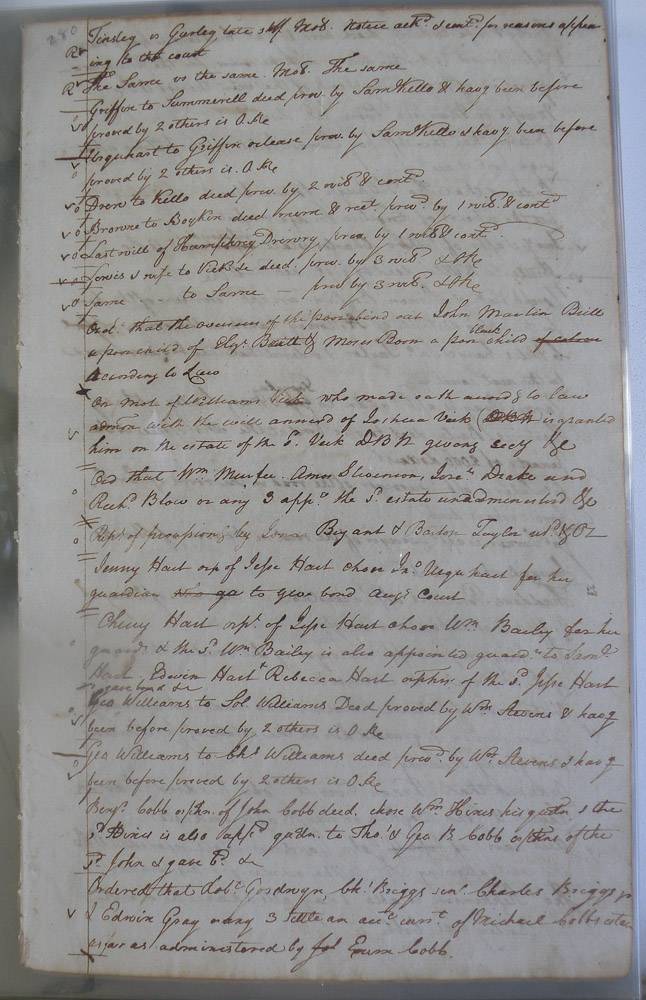 280
Tinsley vs Gurley late shff Mo8. Notice ackd & contd for reasons appear
ing to the court
The Same vs the same. Mo8. The same
Griffin to Summerell deed prov. by Saml Kello & havg been before
proved by 2 others is O Re
Urquhart to Griffin release prov. by Saml Kello & havg been before
proved by 2 others is. O Re
Drew to Kello deed prov. by 2 wits & contd
Browne to Boykin deed mem & rect provd by 1 wits & contd
Last will of Humphrey Drewry prov. by 1 wits & contd
Lewis & wife to Vick &c deed. prov. by 3 wits. & O Re
Same to Same — prov by 3 wits. & O Re
Ord. that the overseers of the poor bind out John Martin Britt
a poor child of & Moses Born a poor black child of colour
According to Law
On mot. of Williams Vick who made oath accordg to law
admon with the will annexd of Joshua Vick ( is granted
him on the estate of the sd. Vick DBN giving secy &c
Ord that Wm Murfee. Amos Stevenson, Drake and
Richd. Blow or any 3 appr the sd estate unadministerd &c
by Bryant & Barton Taylor
Jenny Hart orp of Jesse Hart chose Jno Urquhart for her
guardian to give bond Augt Court
Cherry Hart orpn. of Jesse Hart chose Wm Bailey for her
guardn & the sd. Wm Bailey is also appointed guardn. to Saml.
Hart, Edwin Hart & Rebecca Hart orphns of the sd Jesse Hart
& gave bond &c
Geo Williams to Sol Williams Deed proved by Wm Stevens & havg
been before proved by 2 others is O Re
Geo Williams to Chs Williams deed provd. by Wm Stevens & havg
been before proved by 2 others is O Re
Benjn. Cobb orphn. of John Cobb decd. chose Wm Hines his guardn & the
sd. Hines is also appd gardn. to Thos. & Geo B Cobb orphns of the
sd. John & gave Bd. &c
Ordered that Robt. Goodwyn, Chs. Briggs senr. Charles Briggs jr
& Edwin Gray or any 3 settle an acct. currt. of Michael Cobbs estate
as far as administered by Exum Cobb.